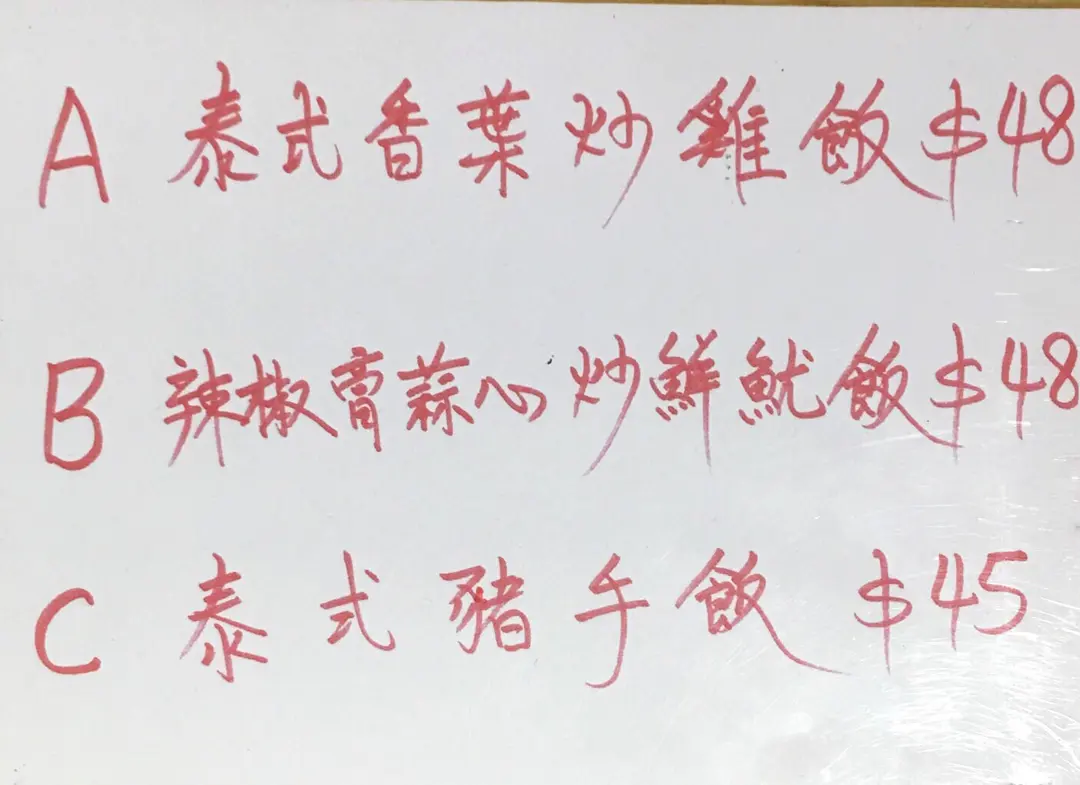 A 泰式香葉炒雞飯 $48
B 辣椒膏蒜心炒鮮魷飯 $48
C 泰式豬手飯 $45